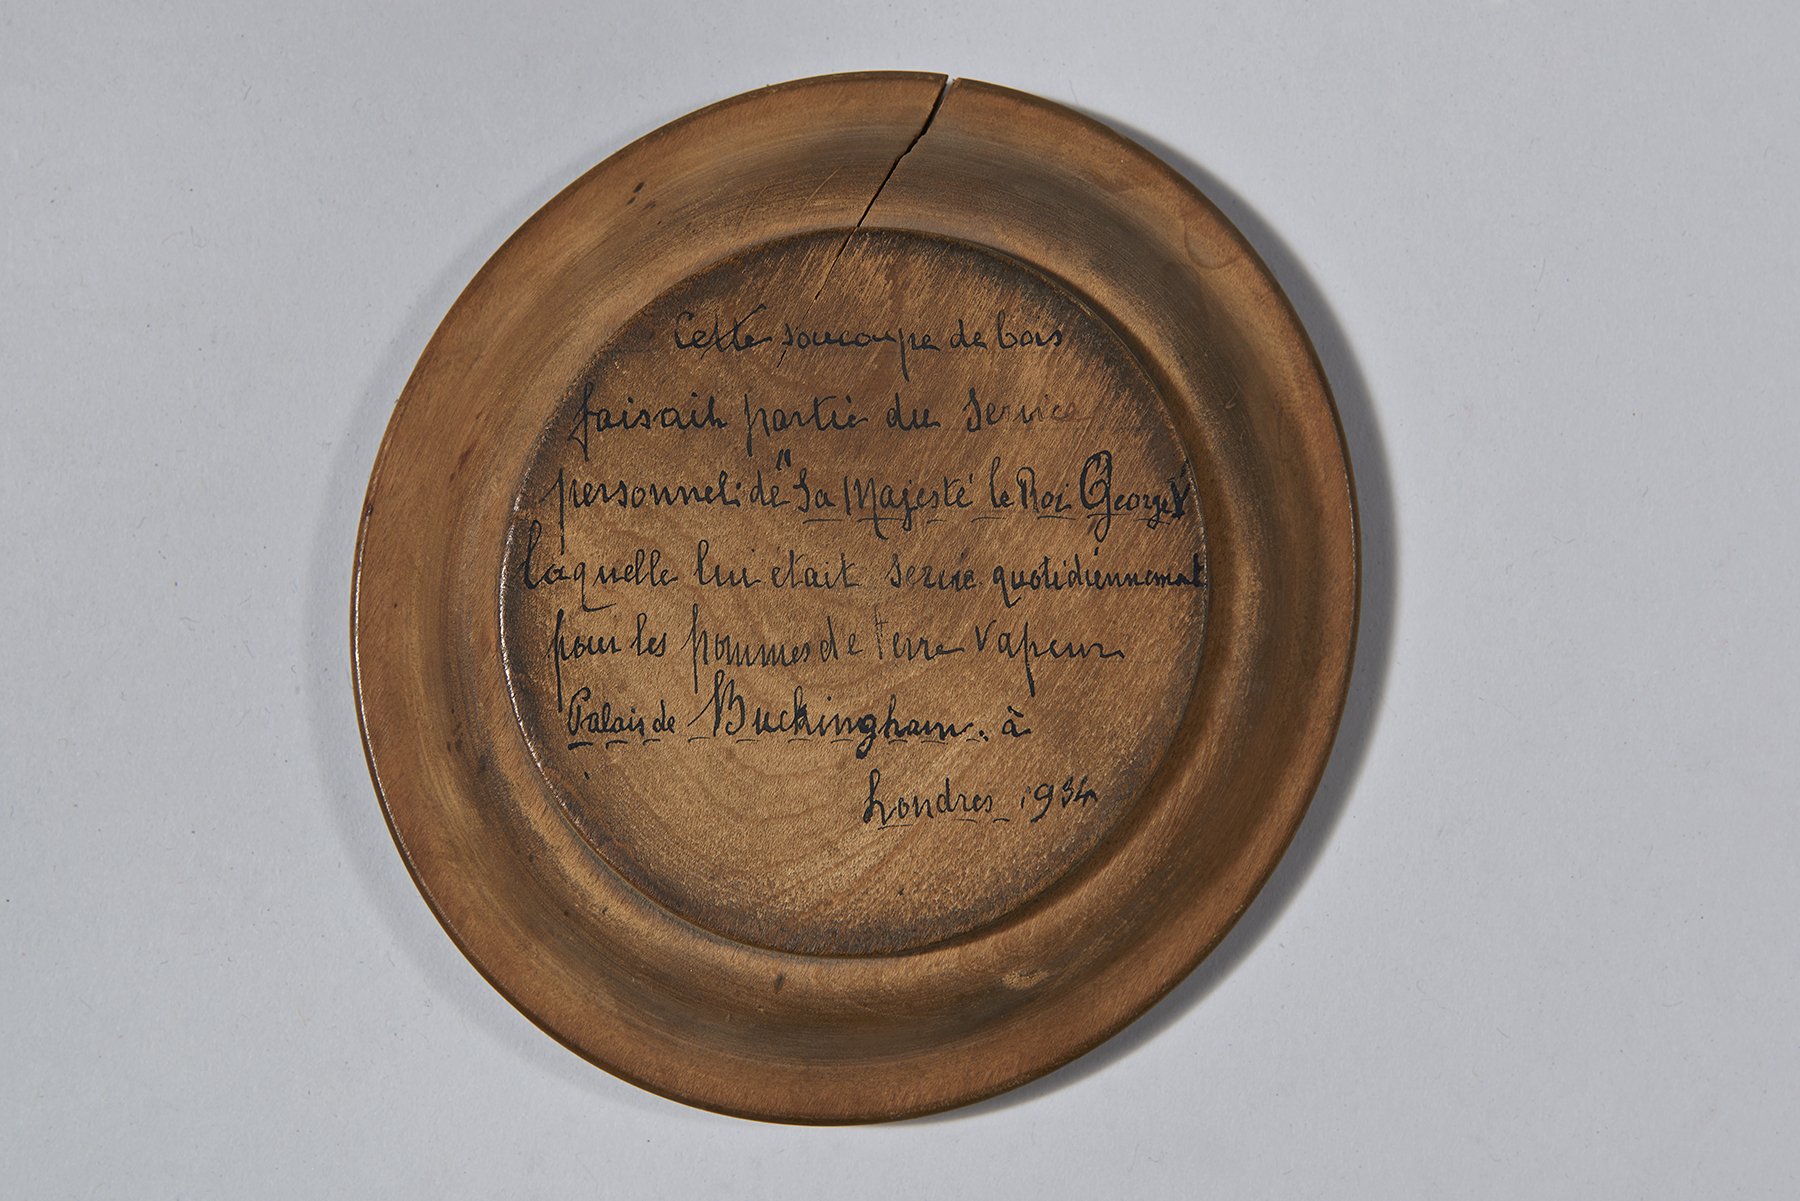 Cette soucoupe de bois
faisait partie du Service
personnel de "Sa Majesté le Roi George V
laquelle lui était servie quotidiennemat
pour les pommes de terre vapeur
Palais de Buckingham. à
Londres 1934